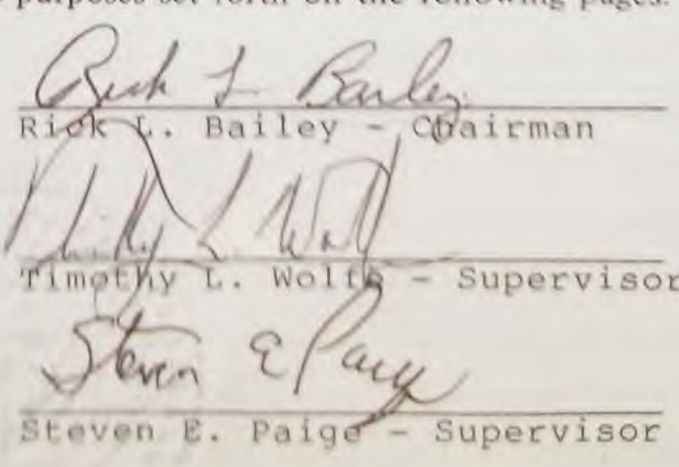 purposes set forth on the following pages.
Rick L Bailey
Rick L. Bailey - Chairman
Timothy L. Wolfe - Supervisor
Steven E Paige
Steven E. Paige - Supervisor